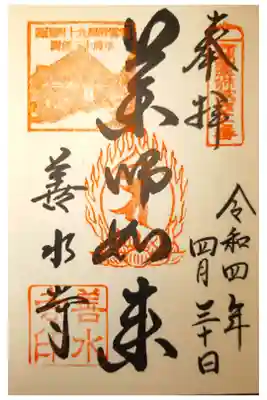 奉拝
令和四年
四月三十日
薬師如来
善水寺
善水
寺印